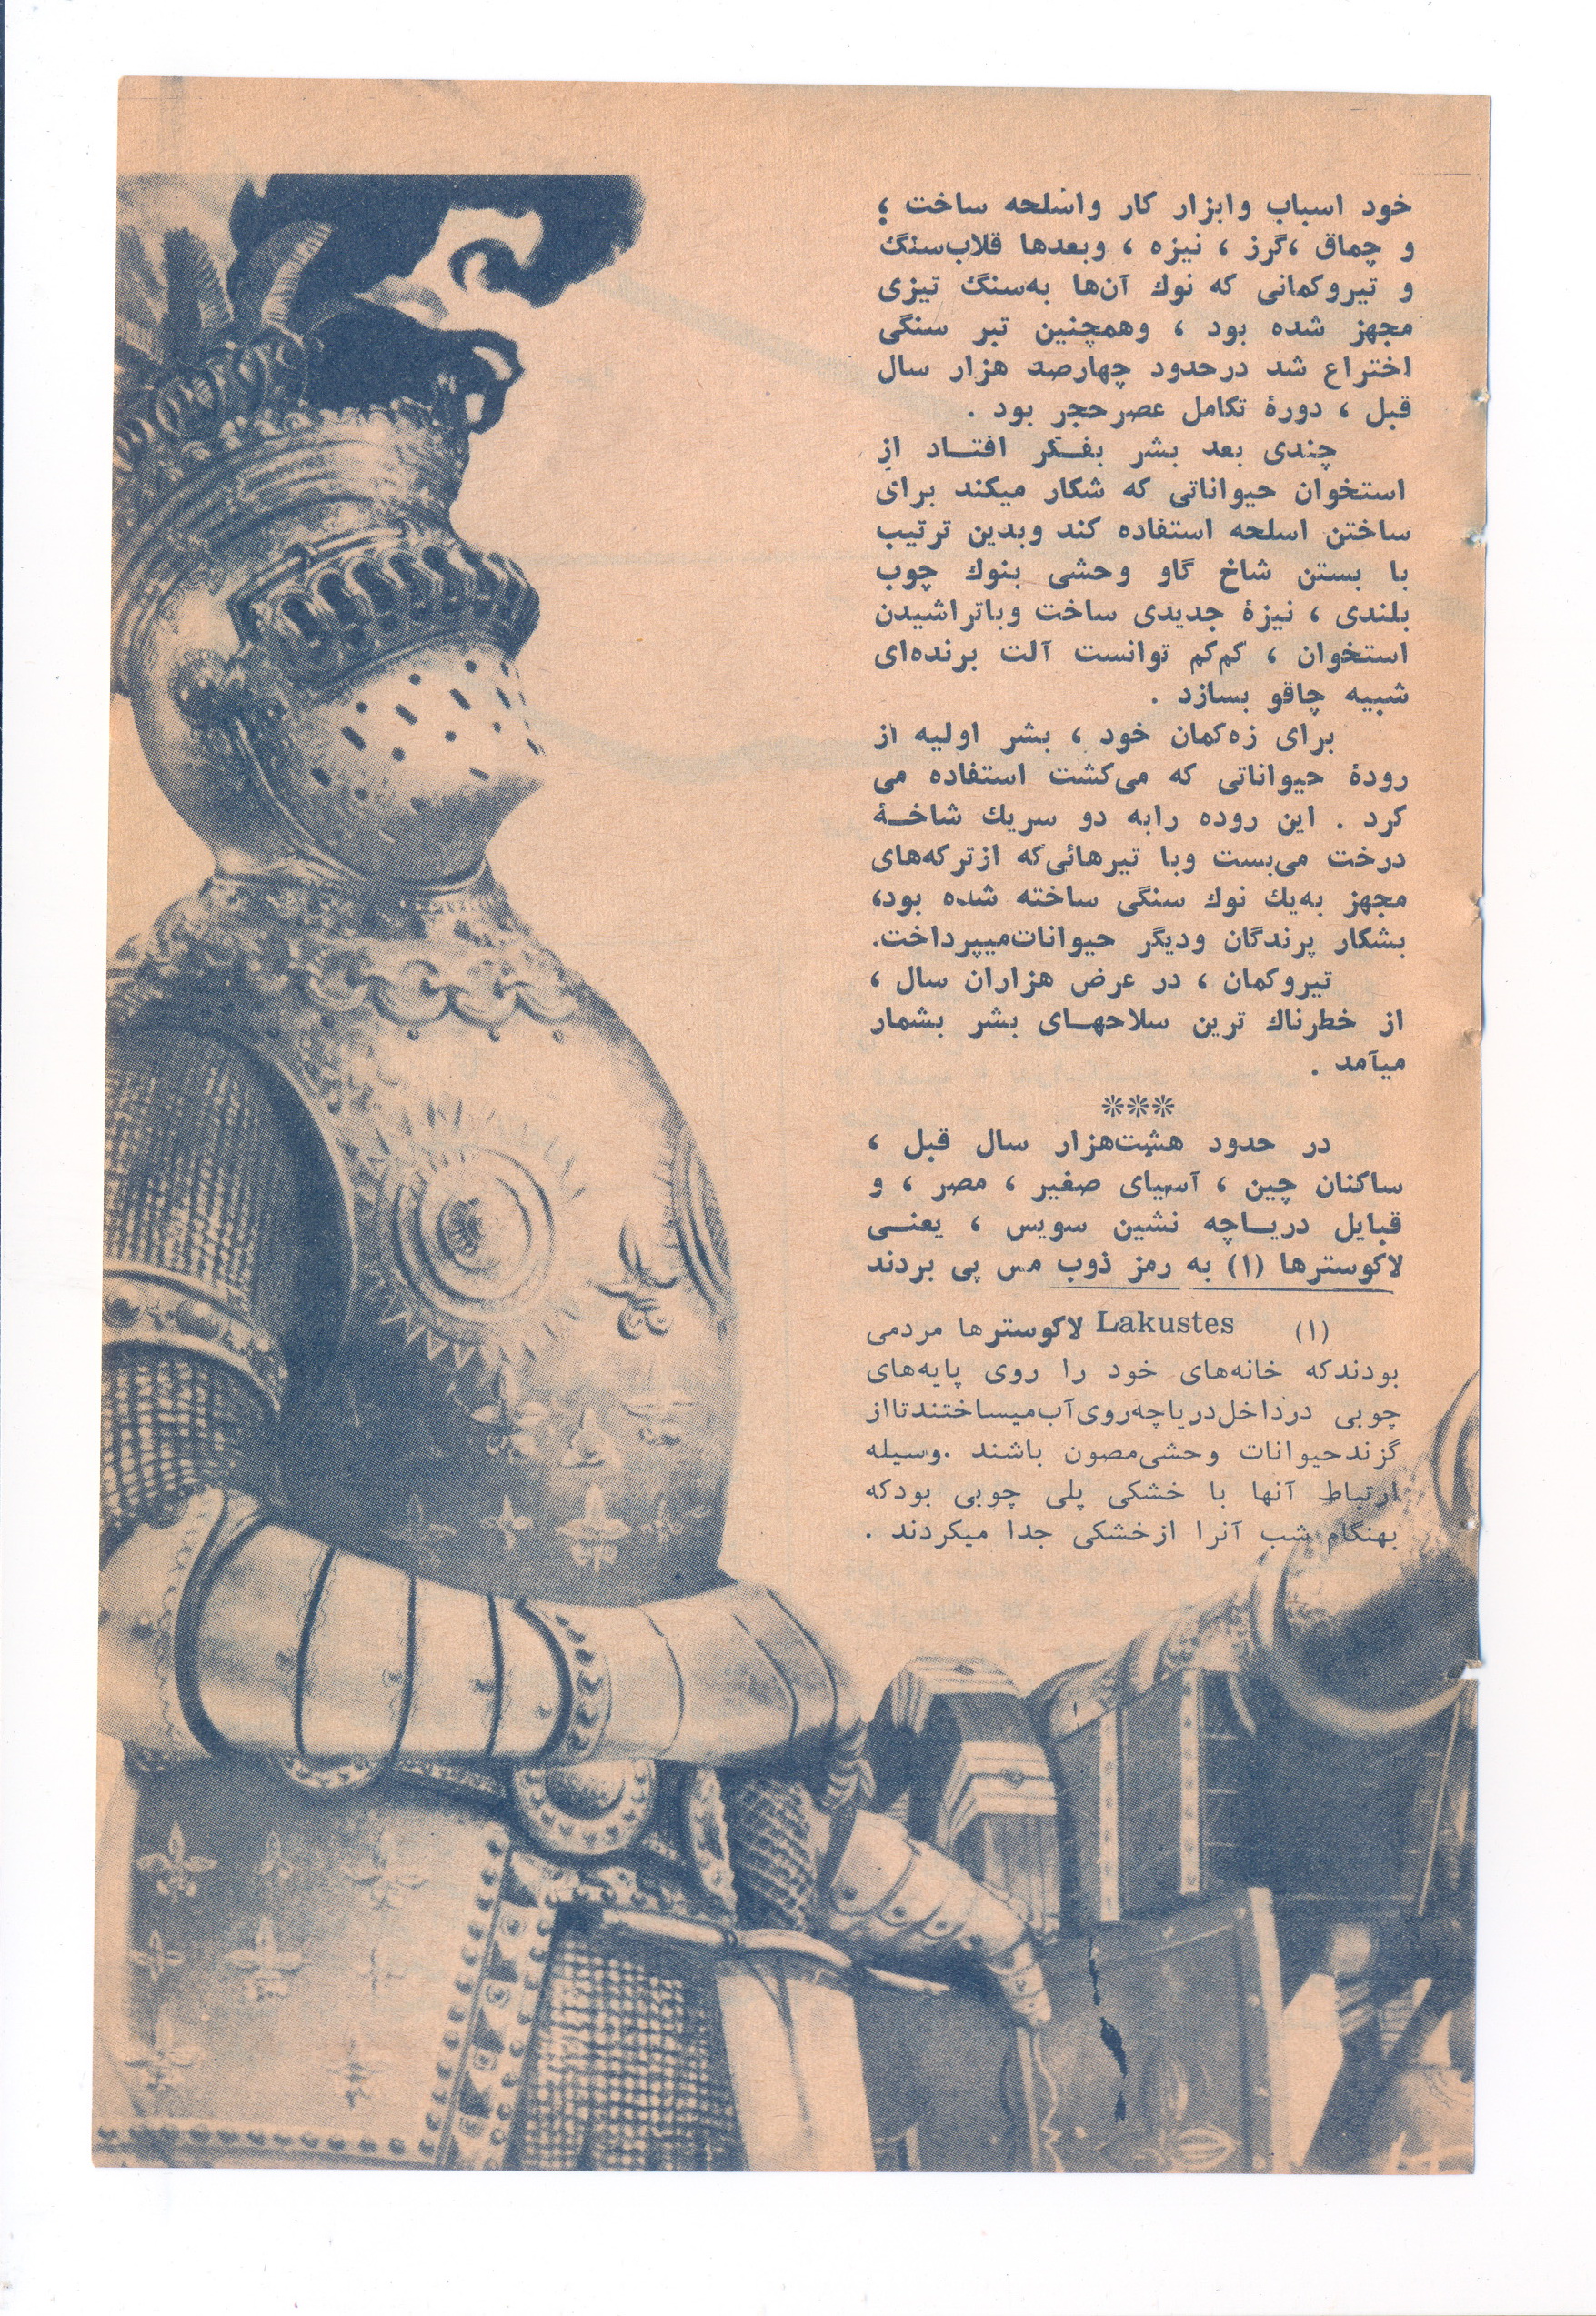 خود اسباب وابزار کار واسلحه ساخت ؛
و چماق ،گرز ، نیزه ، وبعدها قلاب‌سنگ
و تیروکمانی که نوك آن‌ها به‌سنگ تیزی
مجهز شده بود ، وهمچنین تبر سنگی
اختراع شد درحدود چهارصد هزار سال
قبل ، دورهٔ تکامل عصرحجر بود .
چندی بعد بشر بفکر افتاد از
استخوان حیواناتی که شکار میکند برای
ساختن اسلحه استفاده کند وبدین ترتیب
با بستن شاخ گاو وحشی بنوك چوب
بلندی ، نیزهٔ جدیدی ساخت وباتراشیدن
استخوان ، کم‌کم توانست آلت برنده‌ای
شبیه چاقو بسازد .
برای زه‌کمان خود ، بشر اولیه از
رودهٔ حیواناتی که می‌کشت استفاده می
کرد . این روده رابه دو سریك شاخـهٔ
درخت می‌بست وبا تیرهائی‌که ازترکه‌های
مجهز به‌یك نوك سنگی ساخته شده بود،
بشکار پرندگان ودیگر حیوانات‌میپرداخت.
تیروکمان ، در عرض هزاران سال ،
از خطرناك ترین سلاحهـای بشر بشمار
میآمد .
***
در حدود هشت‌هزار سال قبل ،
ساکنان چین ، آسیای صغیر ، مصر ، و
قبایل دریـاچه نشین سویس ، یعنـی
لاکوسترها (۱) به رمز ذوب مس پی بردند
(۱) Lakustes لاکوسترها مردمی
بودندکه خانه‌های خود را روی پایه‌های
چوبی درداخل‌دریاچه‌روی‌آب‌میساختندتااز
گزندحیوانات وحشی‌مصون باشند .وسیله
ارتباط آنها با خشکی پلی چوبی بودکه
بهنگام شب آنرا ازخشکی جدا میکردند .